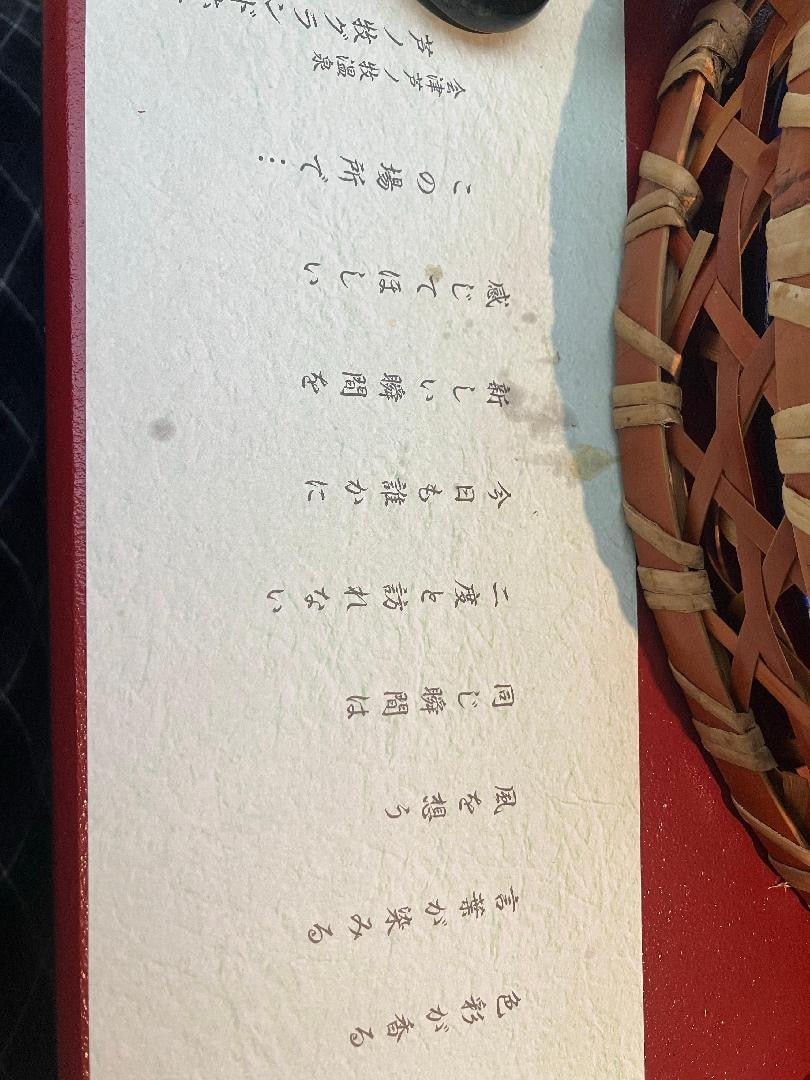 色彩が香る
言葉が染みる
風を想う
同じ瞬間は
二度と訪れない
今日も誰かに
新しい瞬間を
感じてほしい
この場所で…
会津芦ノ牧温泉
芦ノ牧グランド